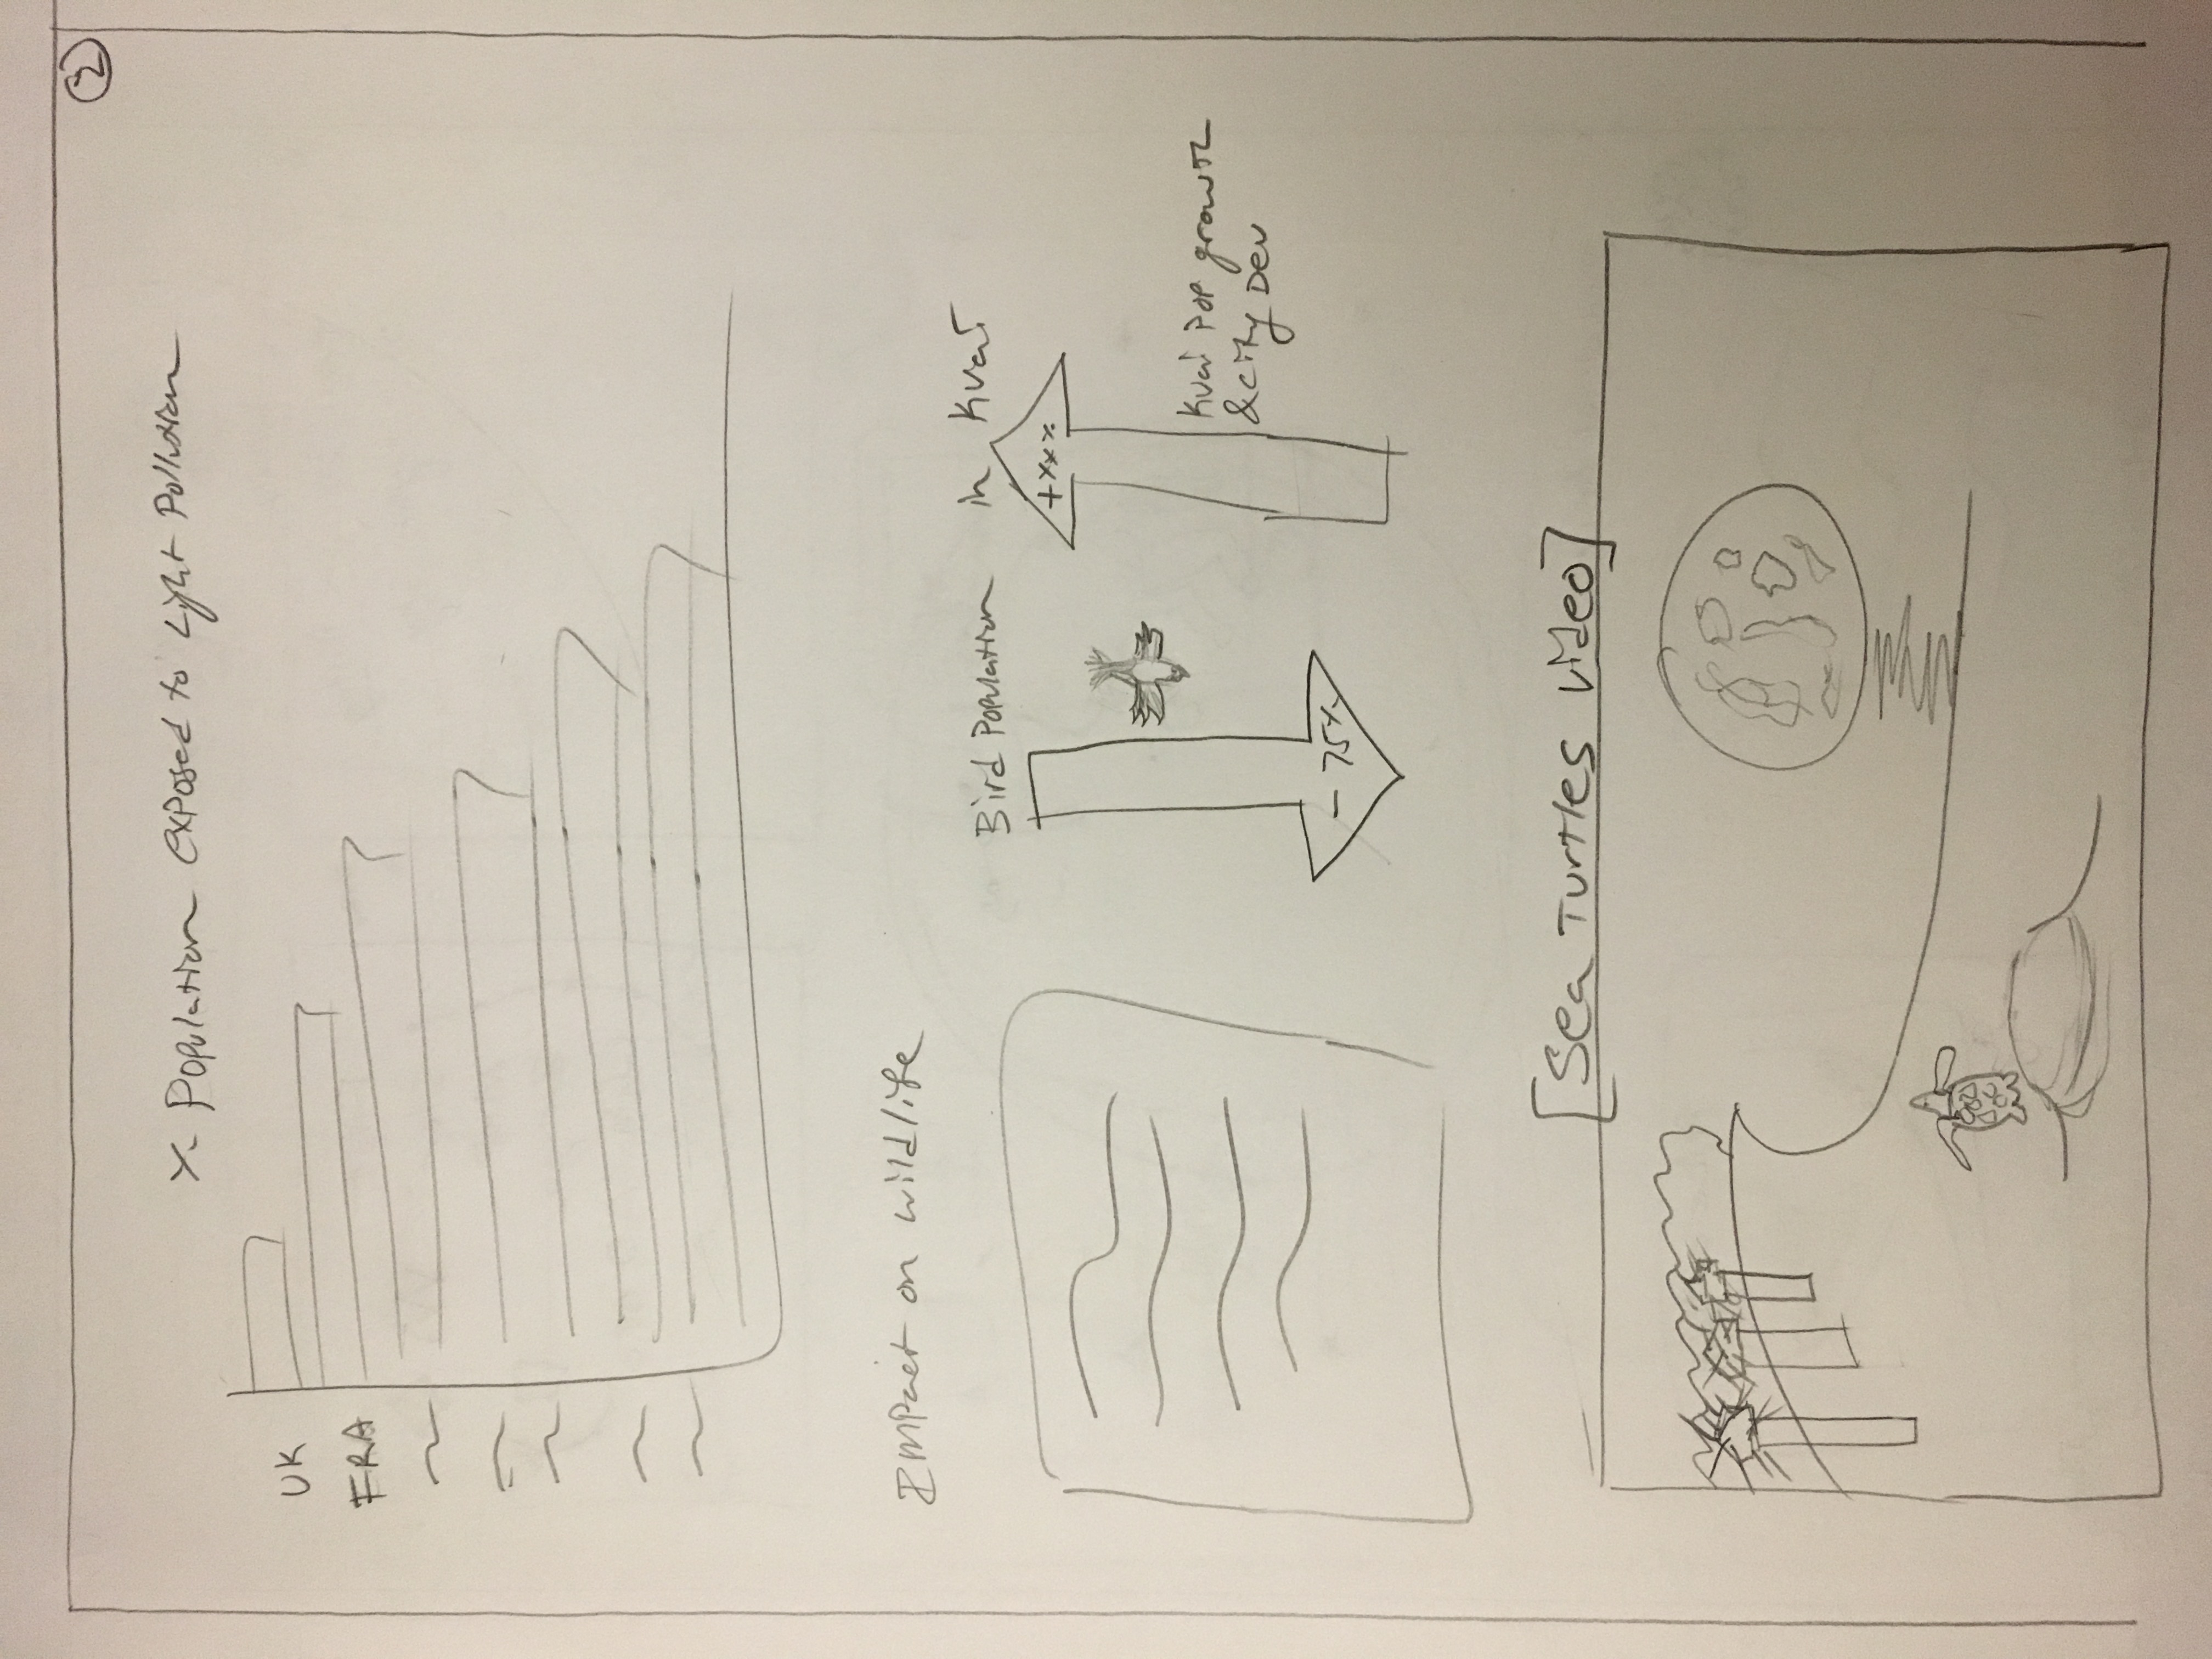 2
% Population exposed to Light Pollution
UK
FRA
Impact on wildlife
Bird Population in Kuai
+xx%
Kuai Pop growth
& city Dev
- 75%
[Sea Turtles Video]